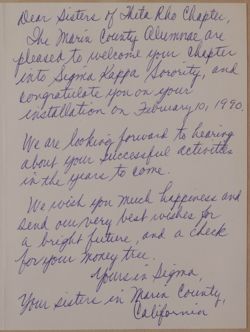 Dear Sisters of Theta Rho Chapter,
The Marin County Alumnae are
pleased to welcome your chapter
into Sigma Kappa Sorority, and
congratulate you on your
installation on February 10, 1990.
We are looking forward to hearing
about your successful activities
in the years to come.
We wish you much happiness and
send our very best wishes for
a bright future, and a check
for your money tree.
Yours in Sigma,
Your sisters in Marin County,
California